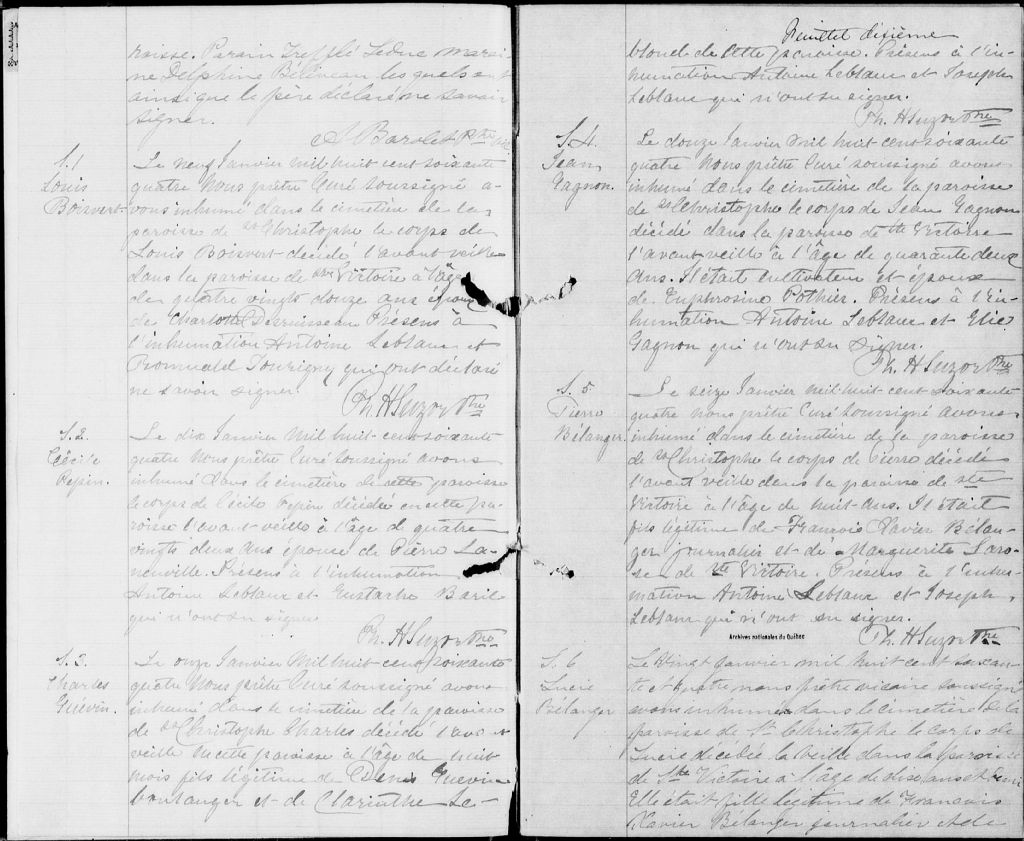 roisse. Parain Trefflé Leduc Marai-
ne Delphine Beliveau les quels ont
ainsi que le père déclaré ne savoir
signer.
A Barolet Ptre
S. 1
Louis
Boisvert.
Le neuf Janvier mil huit cent soixante
quatre Nous prêtre Curé soussigné a-
vons inhumé dans le cimetière de la
paroisse de St Christophe le corps de
Louis Boisvert décédé l'avant veille
dans la paroisse de Ste Victoire à l'âge
de quatre vingt douze ans époux
de Charlotte Desruisseau Présens à
l'inhumation Antoine Leblanc et
Romuald Tourigny qui ont déclaré
ne savoir signer.
Ph. H Suzor Ptre
S. 2.
Cécile
Pepin.
Le dix Janvier mil huit cent soixante
quatre Nous prêtre Curé soussigné avons
inhumé dans le cimetière de cette paroisse
le corps de Cécile Pepin décédée en cette pa-
roisse l'avant veille à l'âge de quatre
vingts deux ans épouse de Pierre La-
neuville. Présens à l'inhumation
Antoine Leblanc et Eustache Baril
qui n'ont su signer
Ph. H Suzor Ptre
S. 3.
Charles
Guevin.
Le onze Janvier mil huit cent soixante
quatre Nous prêtre Curé soussigné avons
inhumé dans le cimetière de la paroisse
de St Christophe Charles décédé l'avant
veille en cette paroisse à l'âge de huit
mois fils légitime de Denis Guevin
boulanger et de Clarinthe Le-
Feuillet dixième
blond de cette paroisse. Présens à l'in-
humation Antoine Leblanc et Joseph
Leblanc qui n'ont su signer.
Ph. H Suzor Ptre
S. 4.
Jean
Gagnon.
Le douze Janvier mil huit cent soixante
quatre Nous prêtre Curé soussigné avons
inhumé dans le cimetière de la paroisse
de St Christophe le corps de Jean Gagnon
décédé dans la paroisse de Ste Victoire
l'avant veille à l'âge de quarante deux
ans. Il était cultivateur et époux
de Euphrosine Pothier. Présens à l'in-
humation Antoine Leblanc et Elie
Gagnon qui n'ont su signer.
Ph. H Suzor Ptre
S. 5
Pierre
Bélanger.
Le seize Janvier mil huit cent soixante
quatre Nous prêtre Curé soussigné avons
inhumé dans le cimetière de la paroisse
de St Christophe le corps de Pierre décédé
l'avant veille dans la paroisse de Ste
Victoire à l'âge de huit ans. Il était
fils légitime de François Xavier Bélan-
ger journalier et de Marguerite Laro-
se de Ste Victoire. Présens à l'inhu-
mation Antoine Leblanc et Joseph
Leblanc qui n'ont su signer.
Archives nationales du Québec
Ph. H Suzor Ptre
S. 6
Lucie
Bélanger
Le Vingt janvier mil huit cent soixan-
te et quatre nous prêtre vicaire soussigné
avons inhumé dans le cimetière de la
paroisse de St Christophe le corps de
Lucie décédée la veille dans la paroisse
de Ste Victoire à l'âge de onze ans et demi
Elle était fille légitime de François
Xavier Bélanger journalier et de